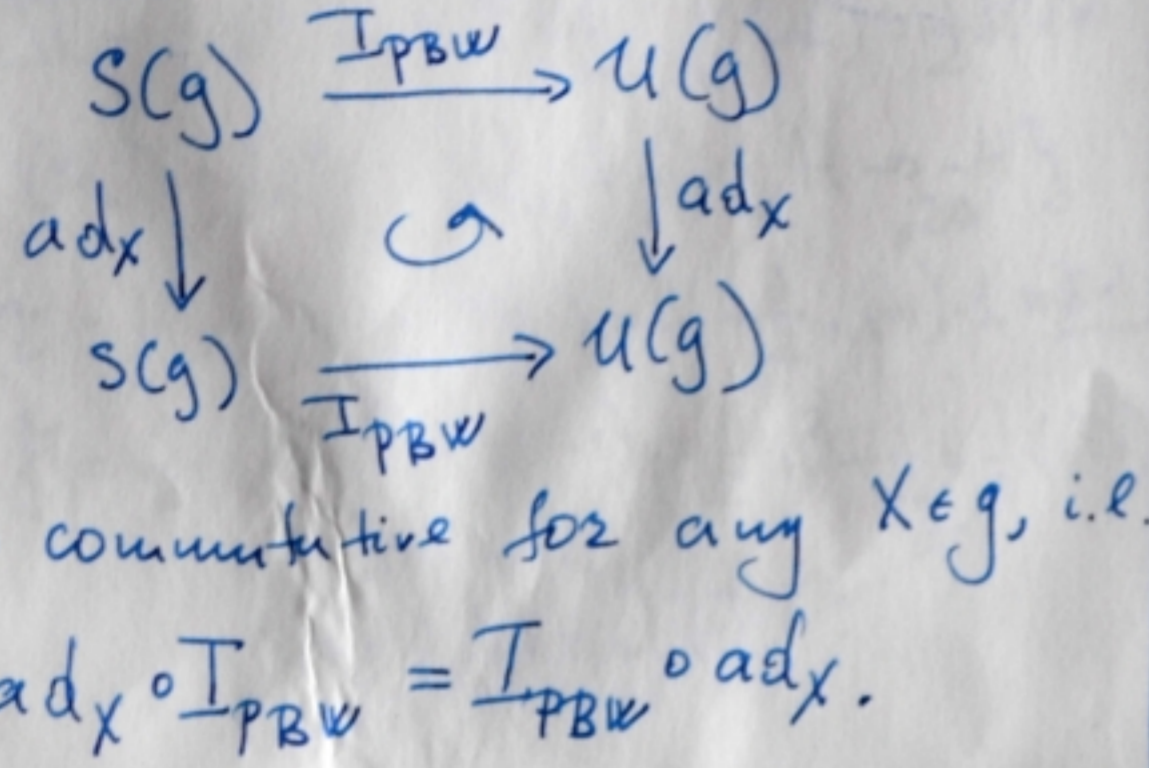 S(g) I_PBW → U(g)
ad_X ↓ ↓ ad_X
S(g) → U(g)
I_PBW
commutative for any X ∈ g, i.e.
ad_X ∘ I_PBW = I_PBW ∘ ad_X.